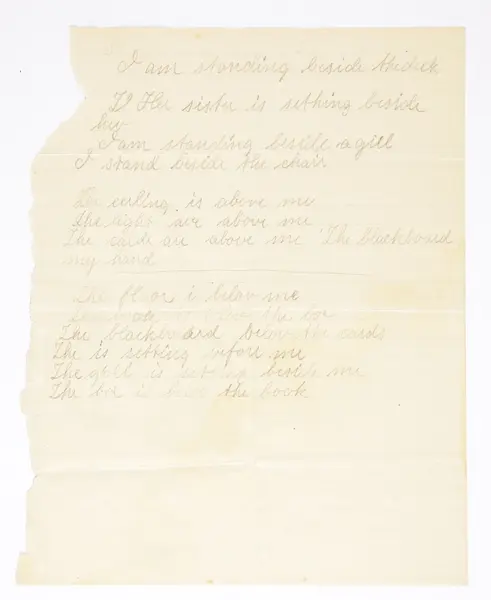 I am standing beside thedesk
Her sister is setthing beside
her
I am standing beside a gill
I stand beside the chair
The ceiling is above me
The light are above me
The cards are above me The blackboard
my hand
The floor is below me
the box
The blackboard below the cards
The is setting before me
The gill is setting beside me
The box is the book